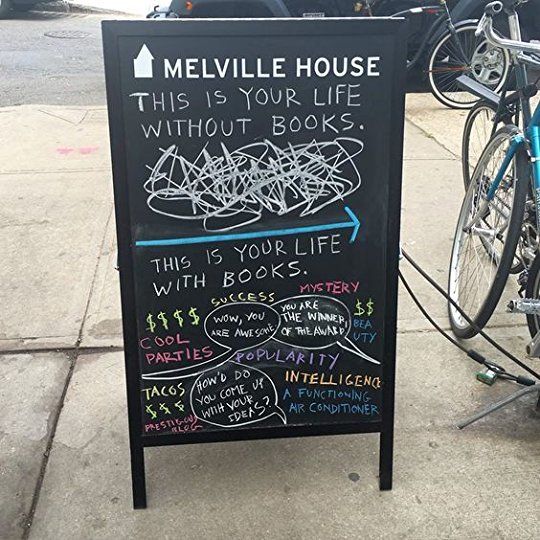 MELVILLE HOUSE
THIS IS YOUR LIFE
WITHOUT BOOKS.
THIS IS YOUR LIFE
WITH BOOKS.
MYSTERY
SUCCESS
$$$$
WOW, YOU
ARE AWESOME
YOU ARE
THE WINNER
OF THE AWARD
$$
BEA
UTY
COOL
PARTIES
POPULARITY
TACOS
$$$
PRESTIGIOUS
BLOG
HOW'D DO
YOU COME UP
WITH YOUR
IDEAS?
INTELLIGENCE
A FUNCTIONING
AIR CONDITIONER